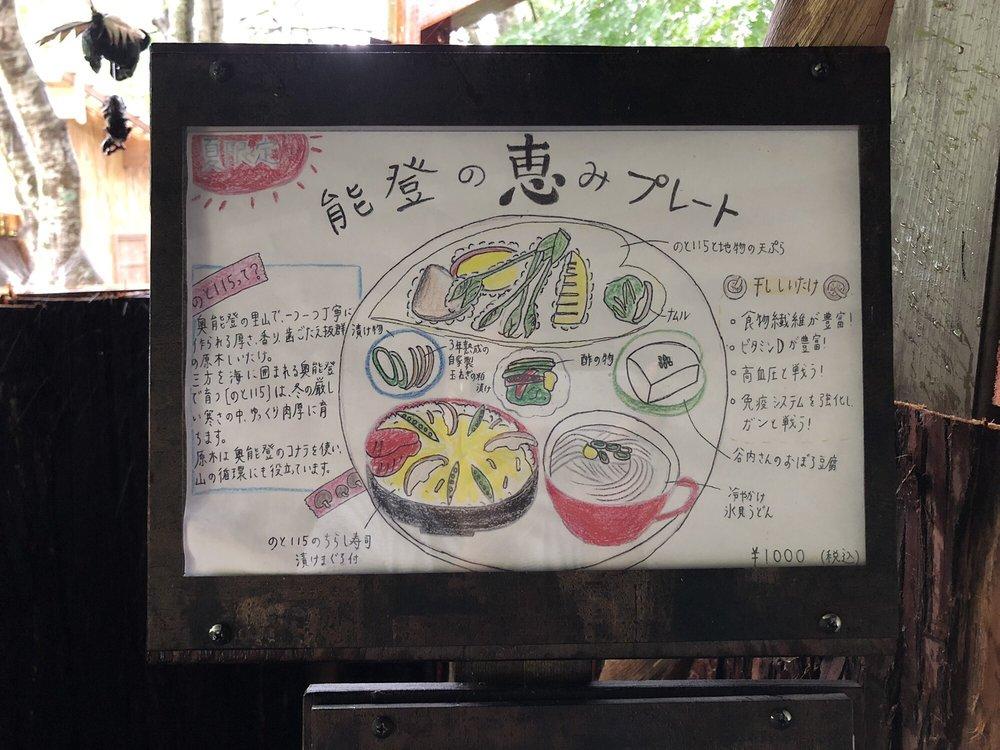 夏限定
能登の恵みプレート
のと115って?
奥能登の里山で、一つ一つ丁寧に
作られる厚さ、香り、歯ごたえ抜群
の原木しいたけ。
三方を海に囲まれる奥能登
で育つ「のと115」は、冬の厳し
い寒さの中、ゆっくり肉厚に育
ちます。
原木は奥能登のコナラを使い、
山の循環にも役立ています。
のと115と地物の天ぷら
ナムル
漬け物
3年熟成の
自家製
玉ねぎの粕
漬け
酢の物
谷内さんのおぼろ豆腐
冷やかけ
氷見うどん
のと115のちらし寿司
漬けまぐろ付
干ししいたけ
食物繊維が豊富!
ビタミンDが豊富!
高血圧と戦う!
免疫システムを強化し、
ガンと戦う!
¥1000 (税込)